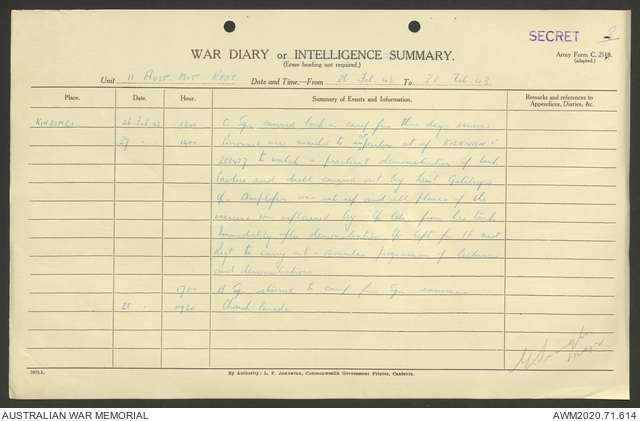 SECRET
WAR DIARY or INTELLIGENCE SUMMARY.
(Erase heading not required.)
Army Form C. 2118.
(adapted.)
Unit 11 Aust Mot Regt Date and Time.—From 26 Feb 43 To 28 Feb 43.
Place. Date. Hour. Summary of Events and Information. Remarks and references to Appendices, Diaries, &c.
26 Feb 43 1300 C Sqn arrived back in camp from three day exercise
27 1400 Personnel were
852427 to watch a practical demonstration of tank
tactics and drill carried out by Lieut
Tp. Amplifier was set up and all phases of the
exercise was explained by Tp Ldr from his tank
Immediately after demonstration Tp left for 16 Mot
Regt to carry out a similar programme of lectures
and demonstrations
1700 B Sqn returned to camp from Sqn exercise
28 0930 Church Parade
By Authority: L. F. JOHNSTON, Commonwealth Government Printer, Canberra.
AUSTRALIAN WAR MEMORIAL
AWM2020.71.614